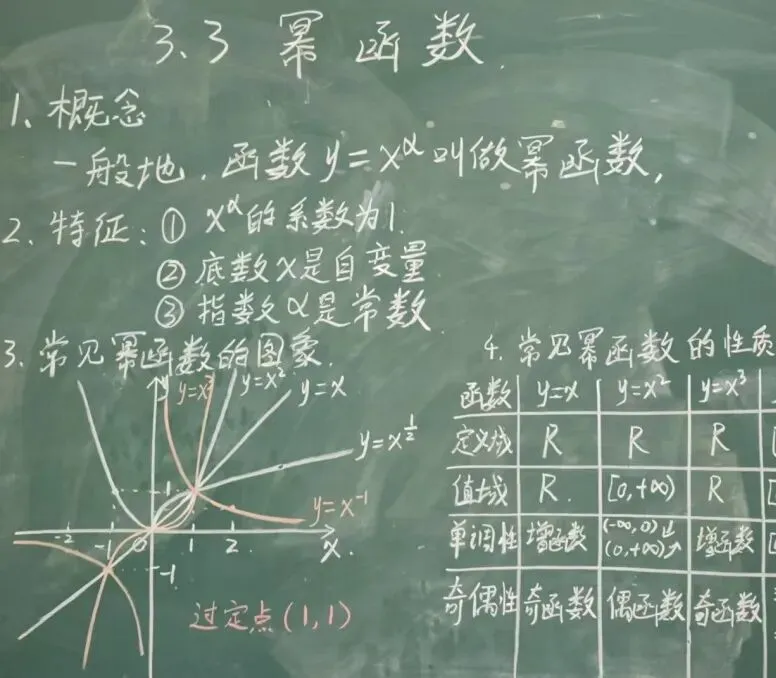 3.3 幂函数.
1、概念
一般地，函数 y=x^α 叫做幂函数,
2、特征：① x^α的系数为1.
② 底数x是自变量
③ 指数α是常数
3、常见幂函数的图象.
y y=x³ y=x² y=x
y=x^{1/2}
1
y=x⁻¹
-2 -1 0 1 2 x
-1
过定点(1,1)
4、常见幂函数的性质
函数 y=x y=x² y=x³
定义域 R R R [
值域 R. [0,+∞) R [
单调性 增函数 (-∞,0)↓ (0,+∞)↗ 增函数 [
奇偶性 奇函数 偶函数 奇函数